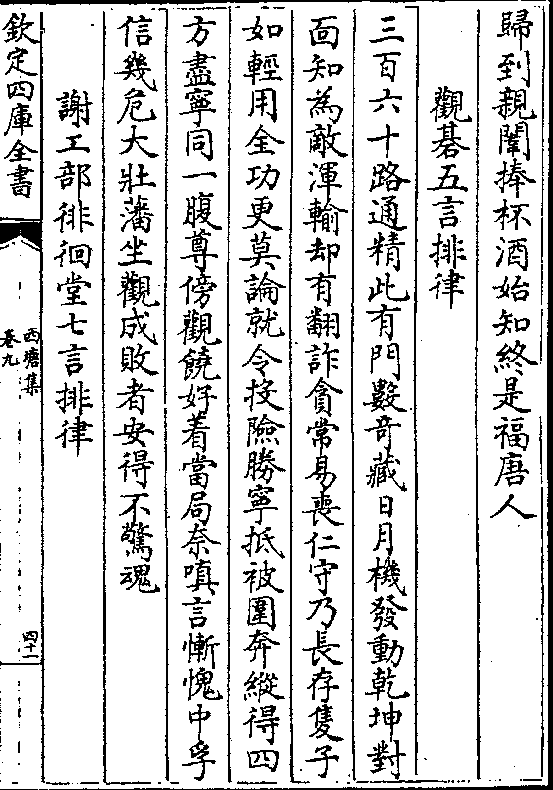 歸到親闈捧杯酒始知終是福唐人
觀碁五言排律
三百六十路通精此有門數竒藏日月機發動乾坤對
面知為敵渾輸却有翻詐貪常易喪仁守乃長存隻子
如輕用全功更莫論就令投險勝寧抵被圍奔縱得四
方盡寧同一腹尊傍觀饒好着當局奈嗔言慚愧中孚
信幾危大壯藩坐觀成敗者安得不驚魂
謝工部徘徊堂七言排律
欽定四庫全書
西塘集
卷九
四十一